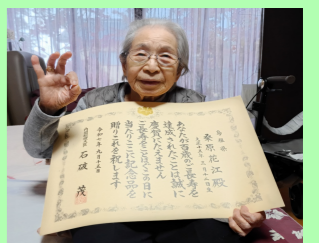 桑原花江殿
あなたが百歳のご長寿を
達成されたことは誠に
慶賀にたえません
ご長寿をことほぐこの日に
当たりここに記念品を
贈りこれを祝します
令和七年九月十五日
内閣総理大臣 石破 茂